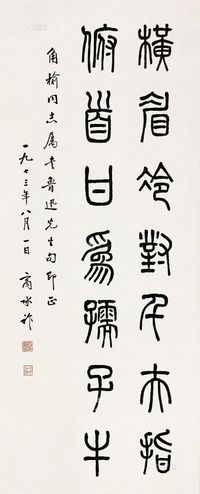 橫眉冷對千夫指
俯首甘爲孺子牛
角榆同志属書魯迅先生句即正
一九七三年八月一日 商承祚